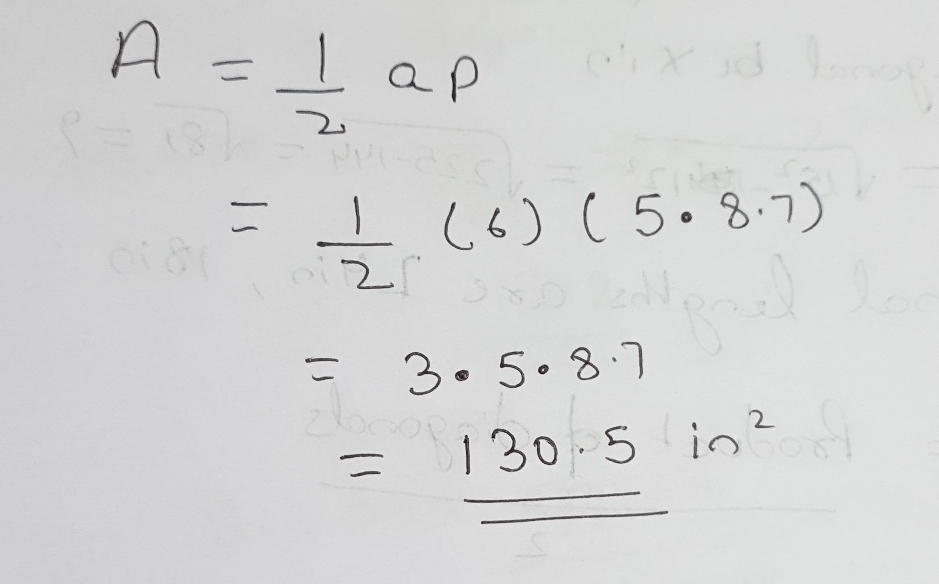 A = 1/2 ap
= 1/2 (6) (5 • 8.7)
= 3 • 5 • 8.7
= 130.5 in²